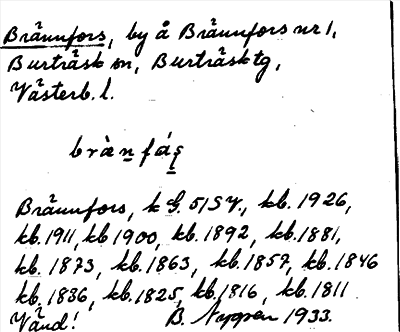 Brännfors, by å Brännfors nr 1,
Burträsk sn, Burträsk tg,
Västerb. l.
brànfáş
Brännfors, k G. 5/5 V., kb. 1926,
kb. 1911, kb 1900, kb. 1892, kb. 1881,
kb. 1873, kb. 1863, kb. 1857, kb. 1846
kb. 1836, kb. 1825, kb. 1816, kb. 1811
Vänd! B. Nygren 1933.